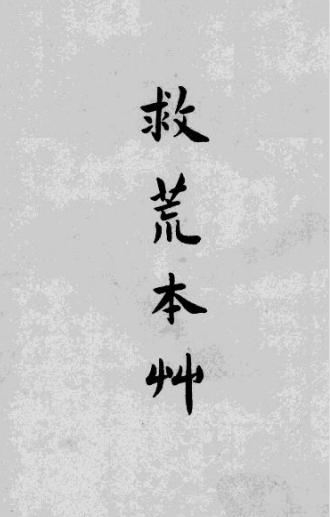 救荒本艸